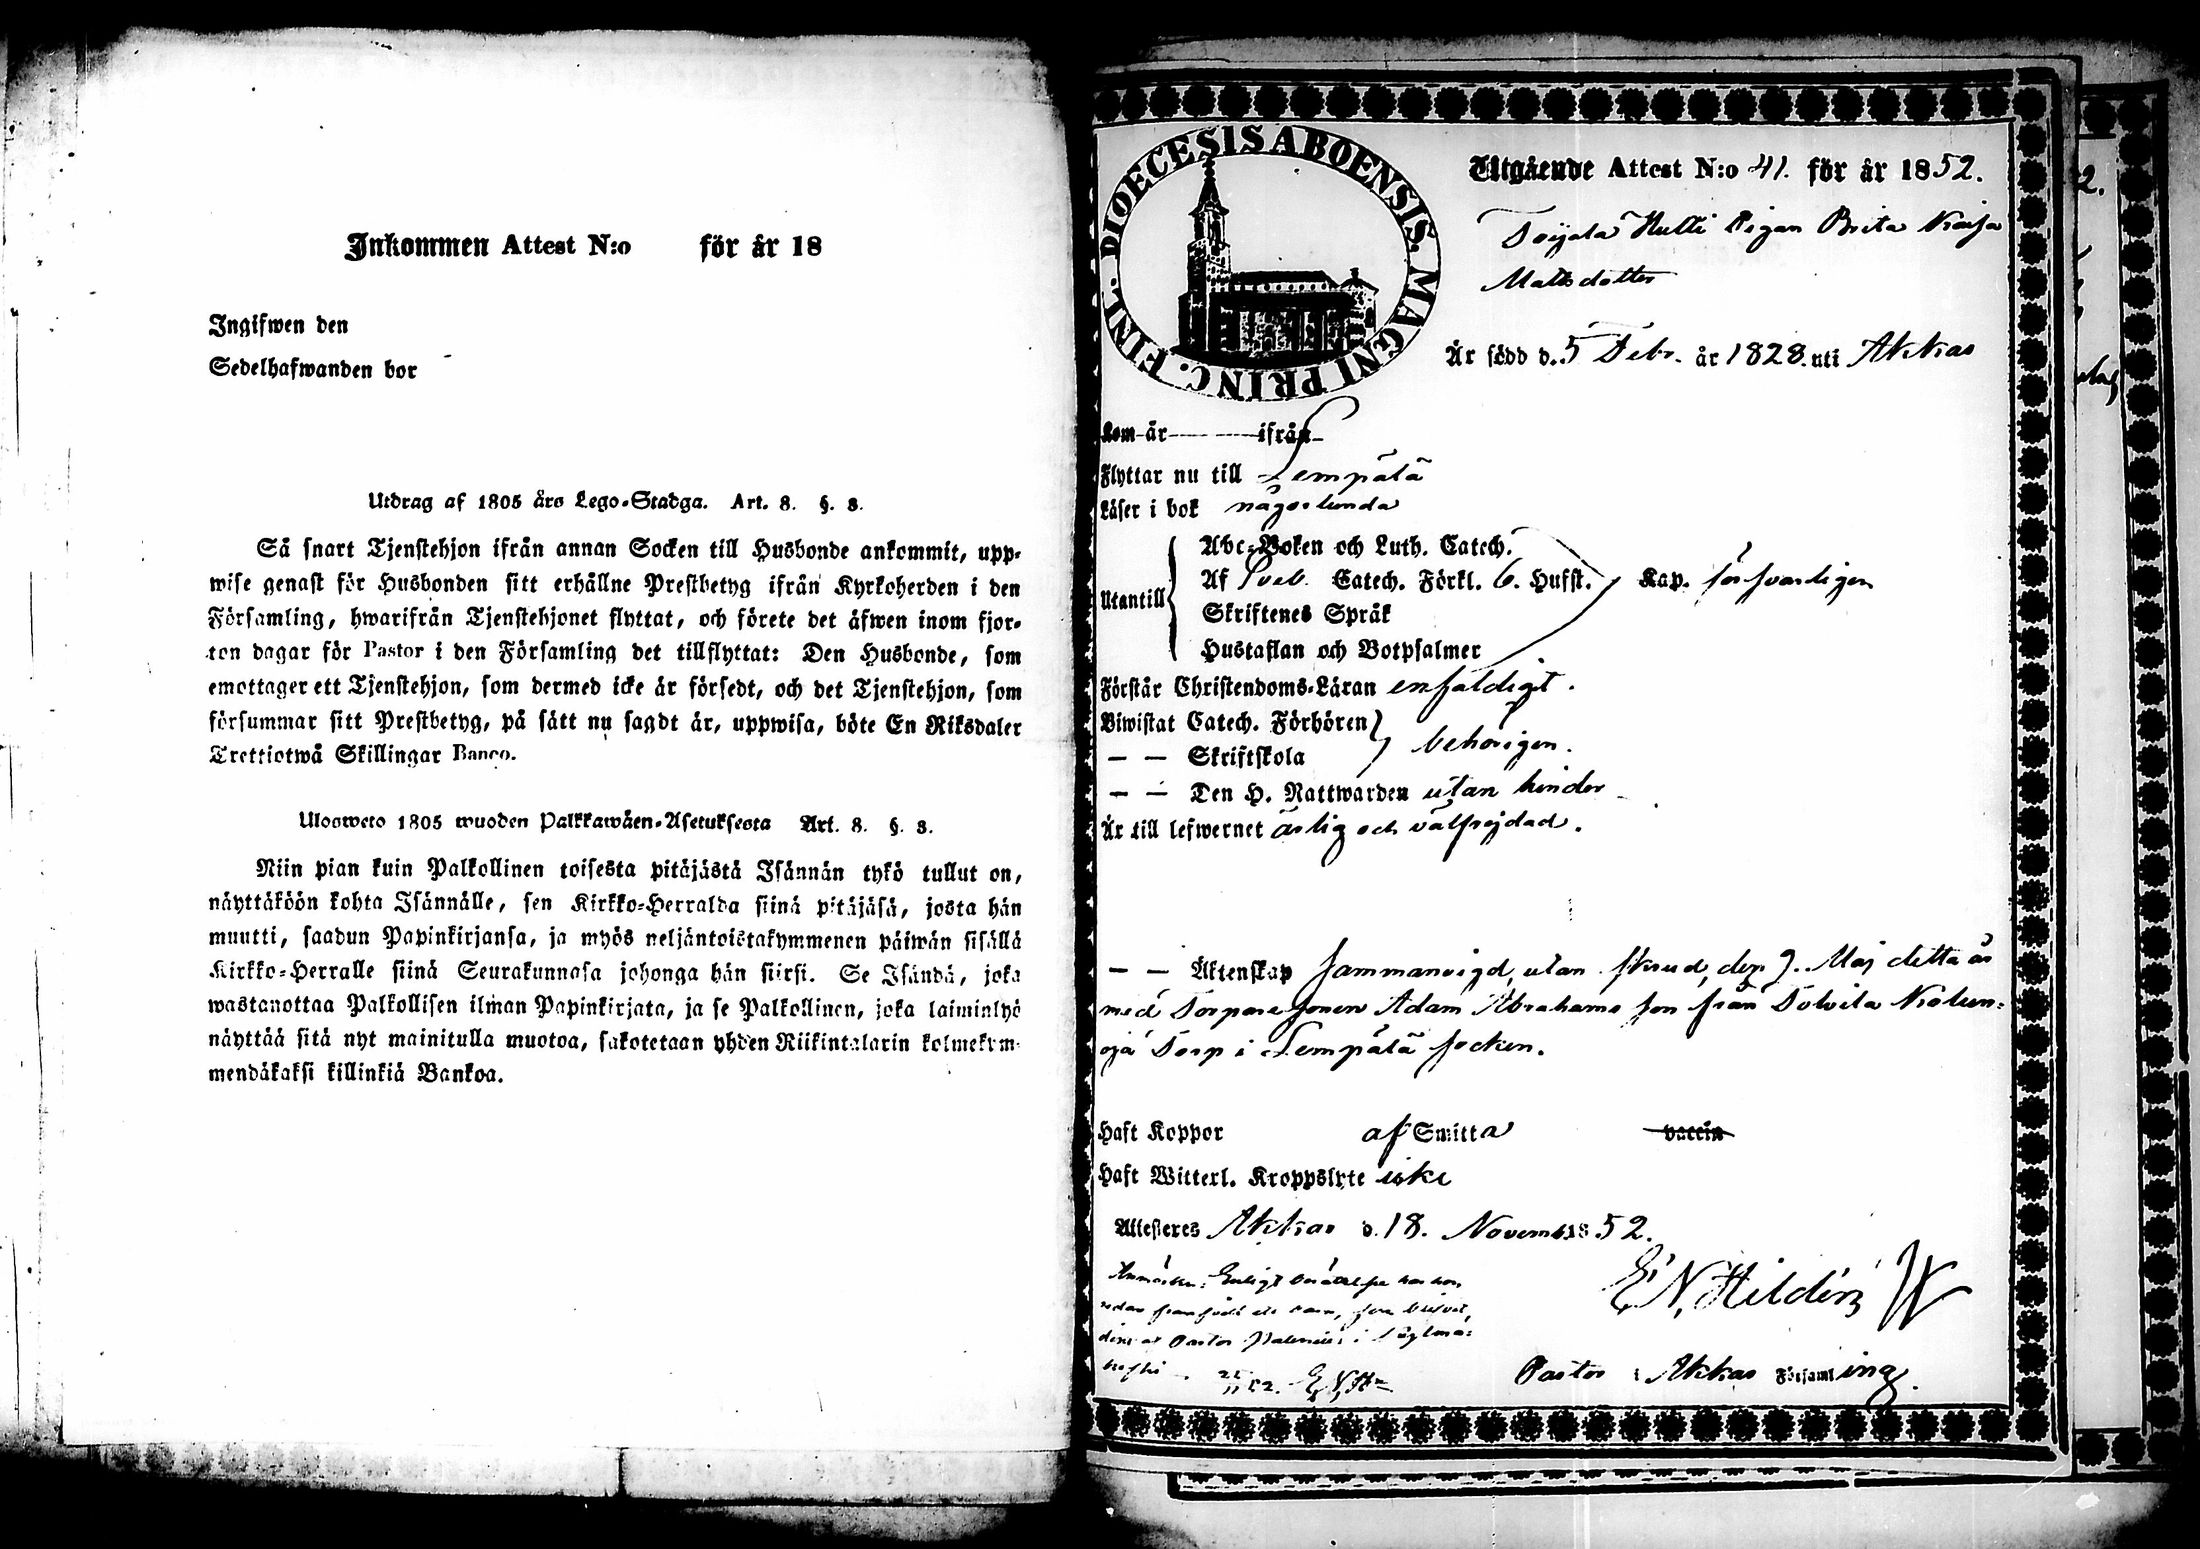 Inkommen Attest N:o för år 18
Ingifwen den
Sedelhafwanden bor
Utdrag af 1805 års Lego-Stadga. Art. 8. §. 3.
Så snart Tjenstehjon ifrån annan Socken till Husbonde ankommit, upp-
wise genast för Husbonden sitt erhållne Prestbetyg ifrån Kyrkoherden i den
Församling, hwarifrån Tjenstehjonet flyttat, och förete det äfwen inom fjor-
ton dagar för Pastor i den Församling det tillflyttat: Den Husbonde, som
emottager ett Tjenstehjon, som dermed icke är försedt, och det Tjenstehjon, som
försummar sitt Prestbetyg, på sätt nu sagdt är, uppwisa, böte En Riksdaler
Trettiotwå Skillingar Banco.
Ulosweto 1805 wuoden Palkkawäen-Asetuksesta Art. 8. §. 3.
Niin pian kuin Palkollinen toisesta pitäjästä Isännän tykö tullut on,
näyttäköön kohta Isännälle, sen Kirkko-Herralda siinä pitäjäsä, josta hän
muutti, saadun Papinkirjansa, ja myös neljäntoistakymmenen päiwän sisällä
Kirkko-Herralle siinä Seurakunnasa johonga hän siirsi. Se Isändä, joka
wastanottaa Palkollisen ilman Papinkirjata, ja se Palkollinen, joka laiminlyö
näyttää sitä nyt mainitulla muotoa, sakotetaan yhden Riikintalarin kolmekym-
mendäkaksi killinkiä Bankoa.
DIOECESIS ABOENSIS. MAGNI PRINC. FINL.
Utgående Attest N:o 41. för år 1852.
Toijala Hulli Pigan Brita Kaisa
Mattsdotter
Är född d. 5 Febr. år 1828. uti Akkas
Kom år ifrån
Flyttar nu till Lempälä
Läser i bok någorlunda
Utantill
Abc-Boken och Luth. Catech.
Af Sveb. Catech. Förkl. 6. Hufst. Kap. försvarligen
Skriftenes Språk
Hustaflan och Botpsalmer
Förstår Christendoms-Läran enfaldigt.
Biwistat Catech. Förhören
— — Skriftskola behörigen.
— — Den H. Nattwarden utan hinder
Är till lefwernet ärlig och välfrejdad.
— — Äktenskap sammanvigd, utan skrud, den 9. Maj detta år
med Torparesonen Adam Abrahams son från Tolvila Kolun-
oja Torp i Lempälä socken.
Haft Koppor af Smitta vaccin
Haft Witterl. Kroppslyte icke
Attesteres Akkas d. 18. Novemb. 1852.
Anmärkn: Enligt berättelse har hon
redan framfödt ett barn, som blifvit
döpt af Pastor i
22/11 52. E N Hn
E N Hildén
Pastor i Akkas Församling.